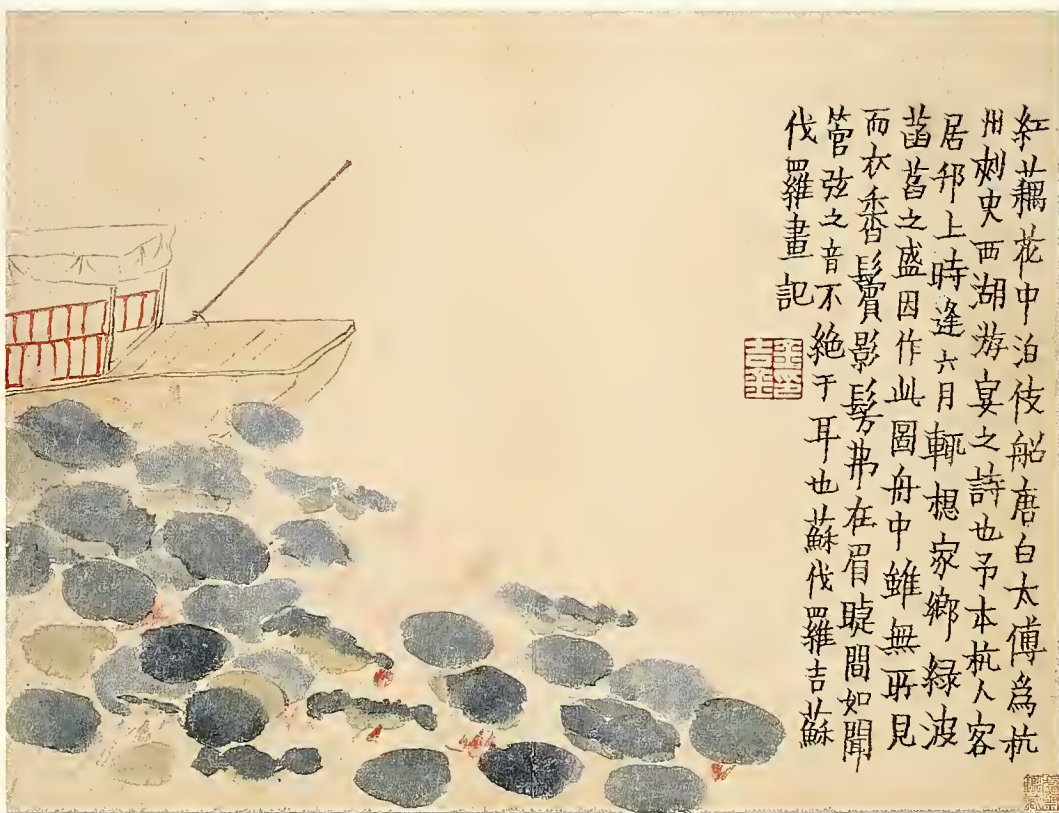 紅藕花中泊伎船唐白太傅爲杭
州刺史西湖游宴之詩也予本杭人客
居邗上時逢六月輒想家鄉綠波
菡萏之盛因作此圖舟中雖無所見
而衣香鬢影髣弗在眉睫間如聞
管弦之音不絕于耳也蘇伐羅吉蘇
伐羅畫記
金吉金印